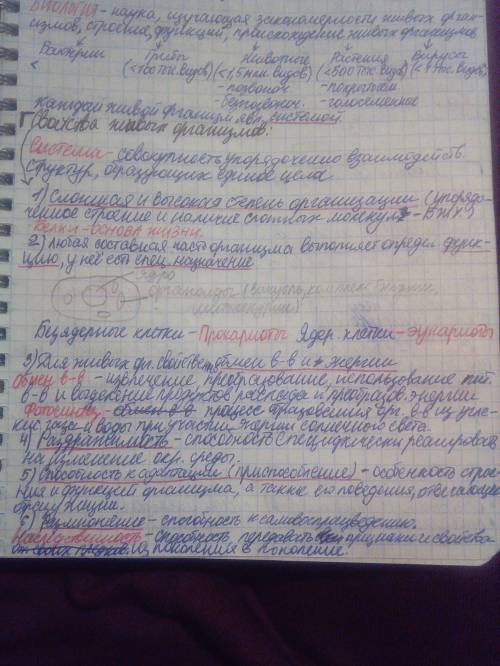 БИОЛОГИЯ - наука, изучающая закономерности живых орган-
измов, строение, функций, происхождение живых организмов
Бактерии Грибы Животные Растения Вирусы
(<100 тыс. видов) (<1,5 млн. видов) (<500 тыс. видов)
- позвоноч. - покрытосем
- беспозвоноч. - голосеменное
Каждый живой организм явл. системой.
Свойства живых организмов:
Система - совокупность упорядоченно взаимодейств.
структур, образующих единое целое
1) Сложная и высокая степень организации (упорядо-
ченное строение и наличие сложных молекул - БЖУ)
Белки - основа жизни.
2) Любая составная часть организма выполняет определ. функ-
цию, у неё есть спец. назначение
ядро
органоиды (вакуоль, комплекс Гольджи,
митохондрии)
Безядерные клетки - Прокариоты Ядер. клетки - эукариоты
3) Для живых ор. свойств. обмен в-в и энергии
Обмен в-в - извлечение, преобразование, использование пит.
в-в и выделение продуктов распада и преобразов. энергии
Фотосинтез - обмен в-в процесс образования орг. в-в из угле-
кис. газа и воды при участии энергии солнечного света.
4) Раздражимость - способность специфически реагировать
на изменение окр. среды.
5) Способность к адаптации (приспособление) - особенность строе-
ния и функций организма, а также его поведения, отвечающее
образу жизни.
6) Размножение - способность к самовоспроизведению.
Наследственность - способность передавать признаки и свойства
от своих предков. из поколения в поколение.